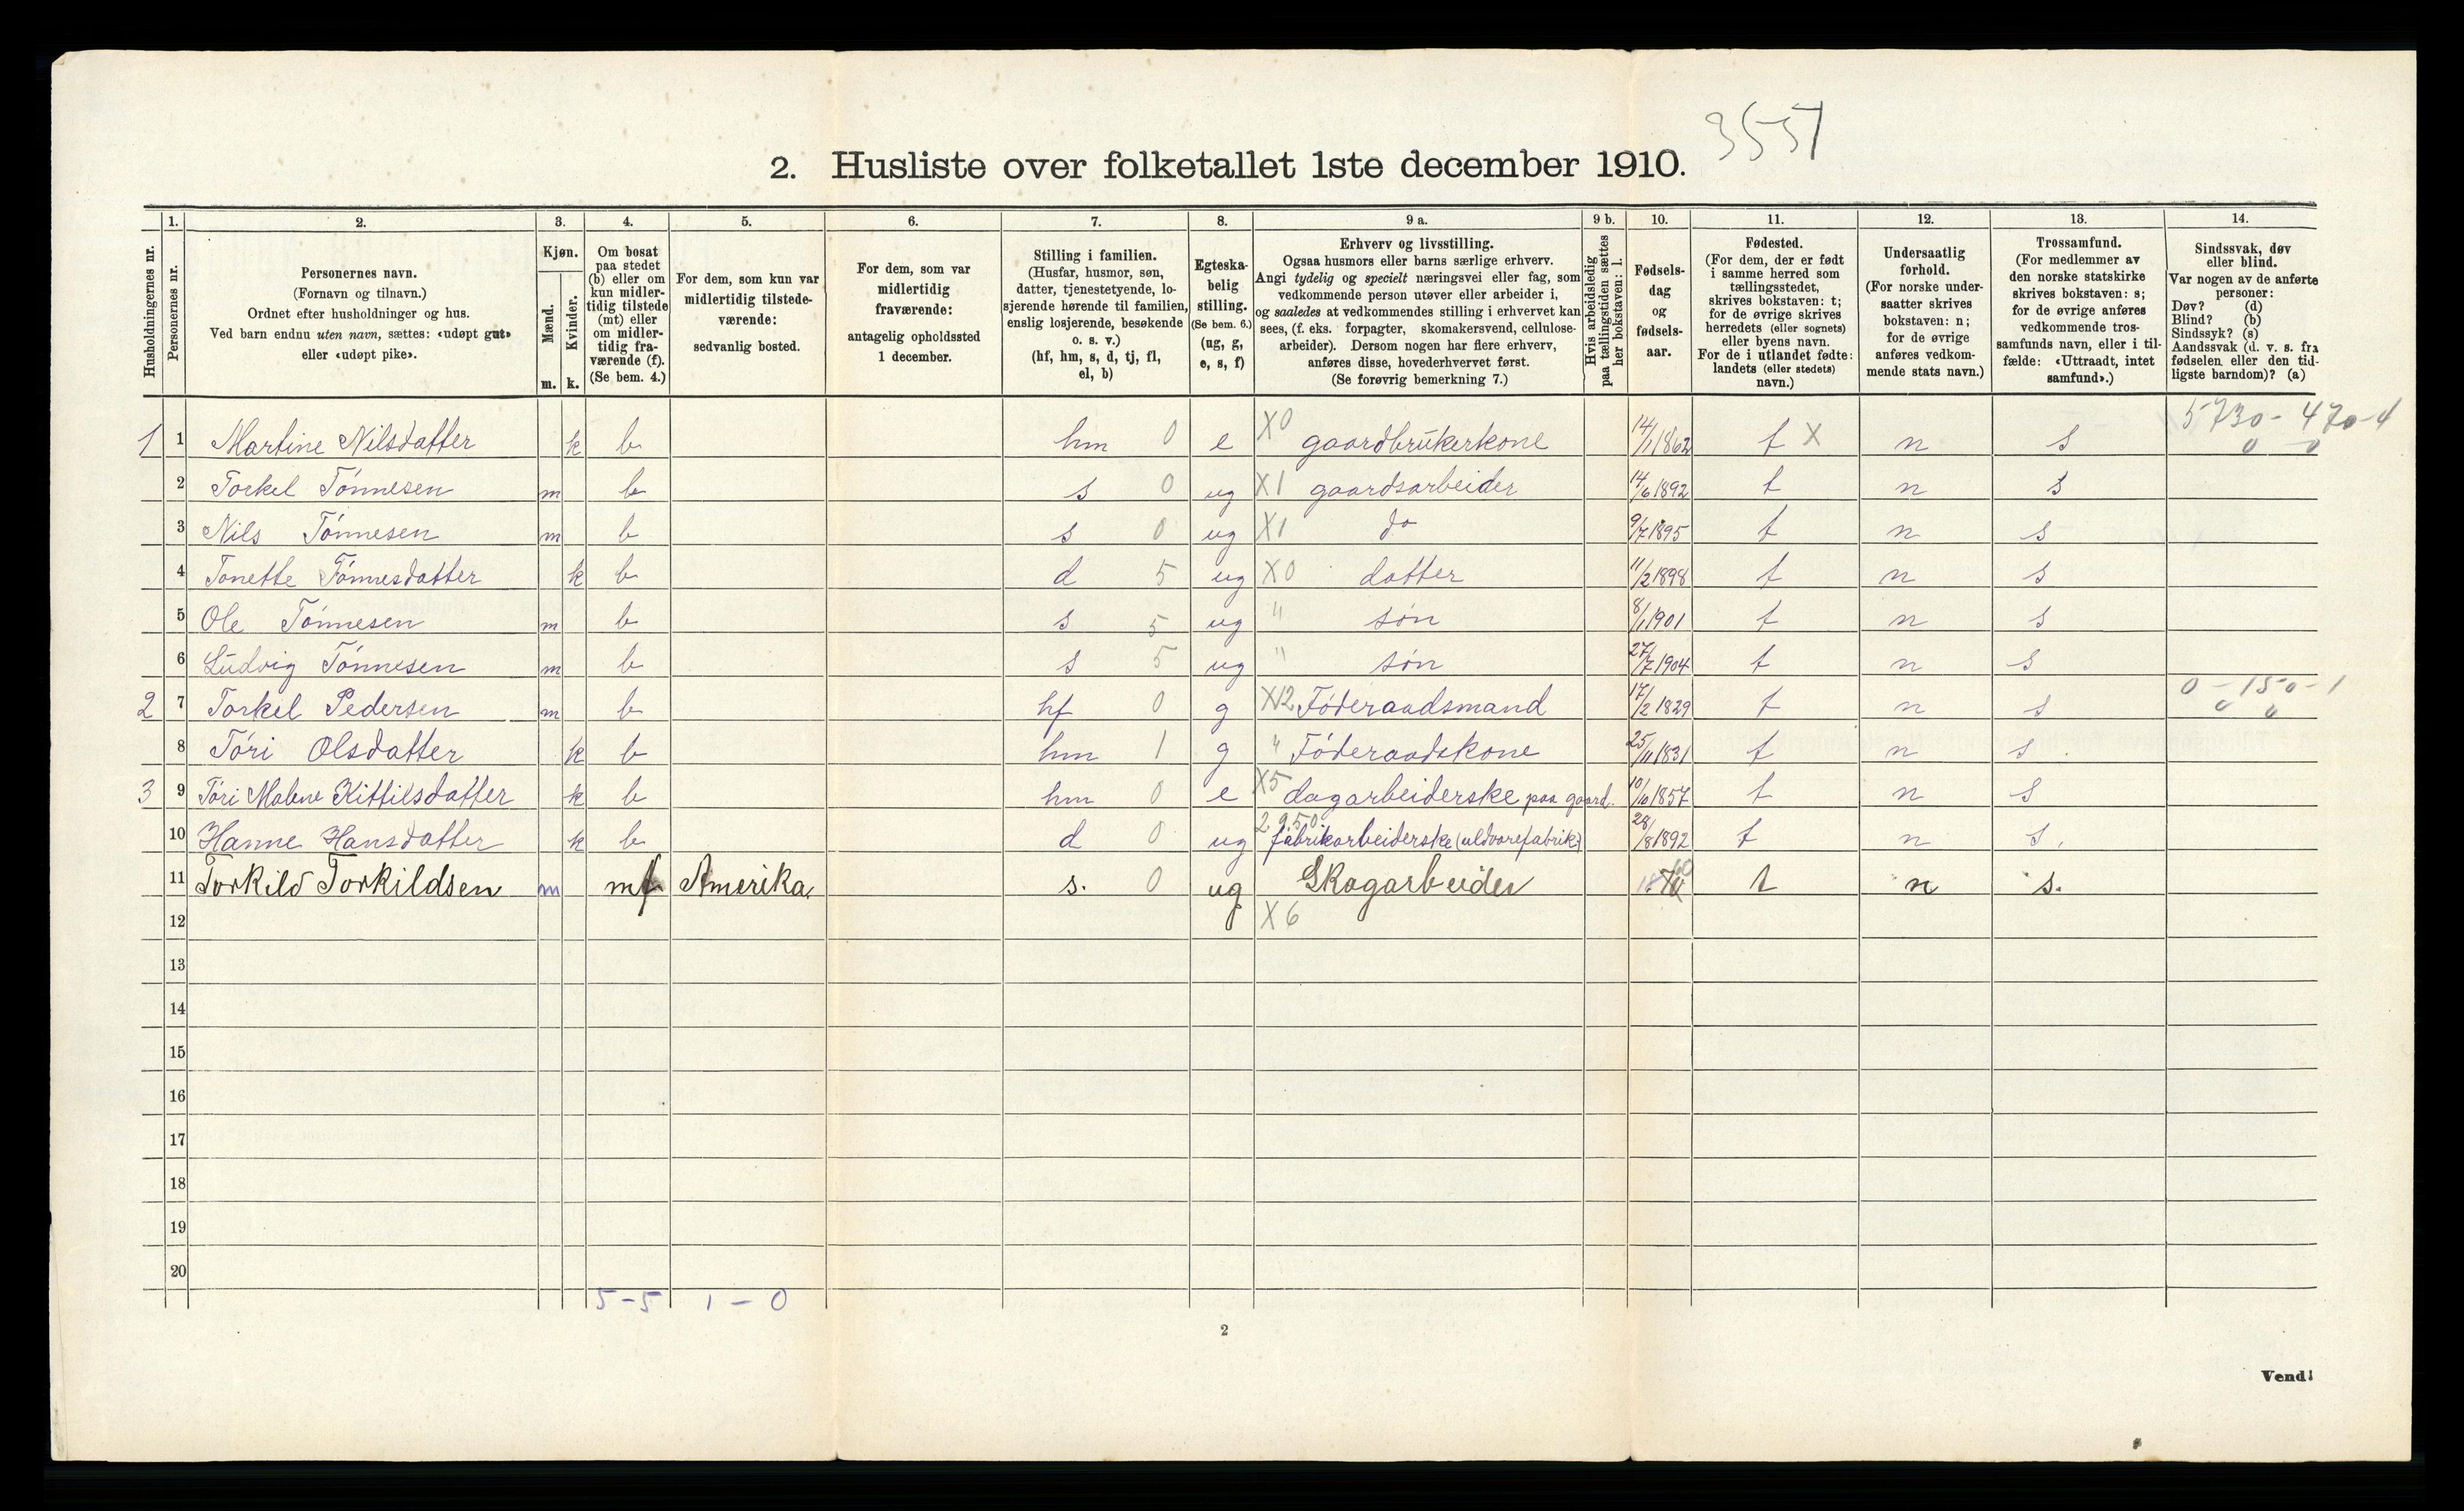 3557
2. Husliste over folketallet 1ste december 1910.
Husholdningernes nr.
1.
Personernes nr.
2.
Personernes navn.
(Fornavn og tilnavn.)
Ordnet efter husholdninger og hus.
Ved barn endnu uten navn, sættes: «udøpt gut»
eller «udøpt pike».
3.
Kjøn.
Mænd.
Kvinder.
m. k.
4.
Om bosat
paa stedet
(b) eller om
kun midler-
tidig tilstede
(mt) eller
om midler-
tidig fra-
værende (f).
(Se bem. 4.)
5.
For dem, som kun var
midlertidig tilstede-
værende:
sedvanlig bosted.
6.
For dem, som var
midlertidig
fraværende:
antagelig opholdssted
1 december.
7.
Stilling i familien.
(Husfar, husmor, søn,
datter, tjenestetyende, lo-
sjerende hørende til familien,
enslig losjerende, besøkende
o. s. v.)
(hf, hm, s, d, tj, fl,
el, b)
8.
Egteska-
belig
stilling.
(Se bem. 6.)
(ug, g,
e, s, f)
9 a.
Erhverv og livsstilling.
Ogsaa husmors eller barns særlige erhverv.
Angi tydelig og specielt næringsvei eller fag, som
vedkommende person utøver eller arbeider i,
og saaledes at vedkommendes stilling i erhvervet kan
sees, (f. eks. forpagter, skomakersvend, cellulose-
arbeider). Dersom nogen har flere erhverv,
anføres disse, hovederhvervet først.
(Se forøvrig bemerkning 7.)
9 b.
Hvis arbeidsledig
paa tællingstiden sættes
her bokstaven: l.
10.
Fødsels-
dag
og
fødsels-
aar.
11.
Fødested.
(For dem, der er født
i samme herred som
tællingsstedet,
skrives bokstaven: t;
for de øvrige skrives
herredets (eller sognets)
eller byens navn.
For de i utlandet fødte:
landets (eller stedets)
navn.)
12.
Undersaatlig
forhold.
(For norske under-
saatter skrives
bokstaven: n;
for de øvrige
anføres vedkom-
mende stats navn.)
13.
Trossamfund.
(For medlemmer av
den norske statskirke
skrives bokstaven: s;
for de øvrige anføres
vedkommende tros-
samfunds navn, eller i til-
fælde: «Uttraadt, intet
samfund».)
14.
Sindssvak, døv
eller blind.
Var nogen av de anførte
personer:
Døv? (d)
Blind? (b)
Sindssyk? (s)
Aandssvak (d. v. s. fra
fødselen eller den tid-
ligste barndom)? (a)
5730 - 470-4
1 1 Martine Nilsdatter k b hm 0 e X0 gaardbrukerkone 14/1 1862 t X n s 0 0
2 Torkel Tønnesen m b s 0 ug X1 gaardsarbeider 14/6 1892 t n s
3 Nils Tønnesen m b s 0 ug X1 do 9/7 1895 t n s
4 Tonette Tønnesdatter k b d 5 ug X0 datter 11/2 1898 t n s
5 Ole Tønnesen m b s 5 ug " søn 8/1 1901 t n s
6 Ludvig Tønnesen m b s 5 ug " søn 27/7 1904 t n s
0 - 150-1
2 7 Torkel Pedersen m b hf 0 g X12 Føderaadsmand 17/2 1829 t n s 0 0
8 Tóri Olsdatter k b hm 1 g " Føderaadskone 25/11 1831 t n s
3 9 Tóri Malene Kittilsdatter k b hm 0 e X5 dagarbeiderske paa gaard. 10/10 1857 t n s
10 Hanne Hansdatter k b d 0 ug 2950 fabrikarbeiderske (uldvarefabrik) 28/8 1892 t n s.
11 Torkild Torkildsen m Amerika. s. 0 ug Skogarbeider t n s.
12 X6
13
14
15
16
17
18
19
20
5-5 1-0
2
Vend!